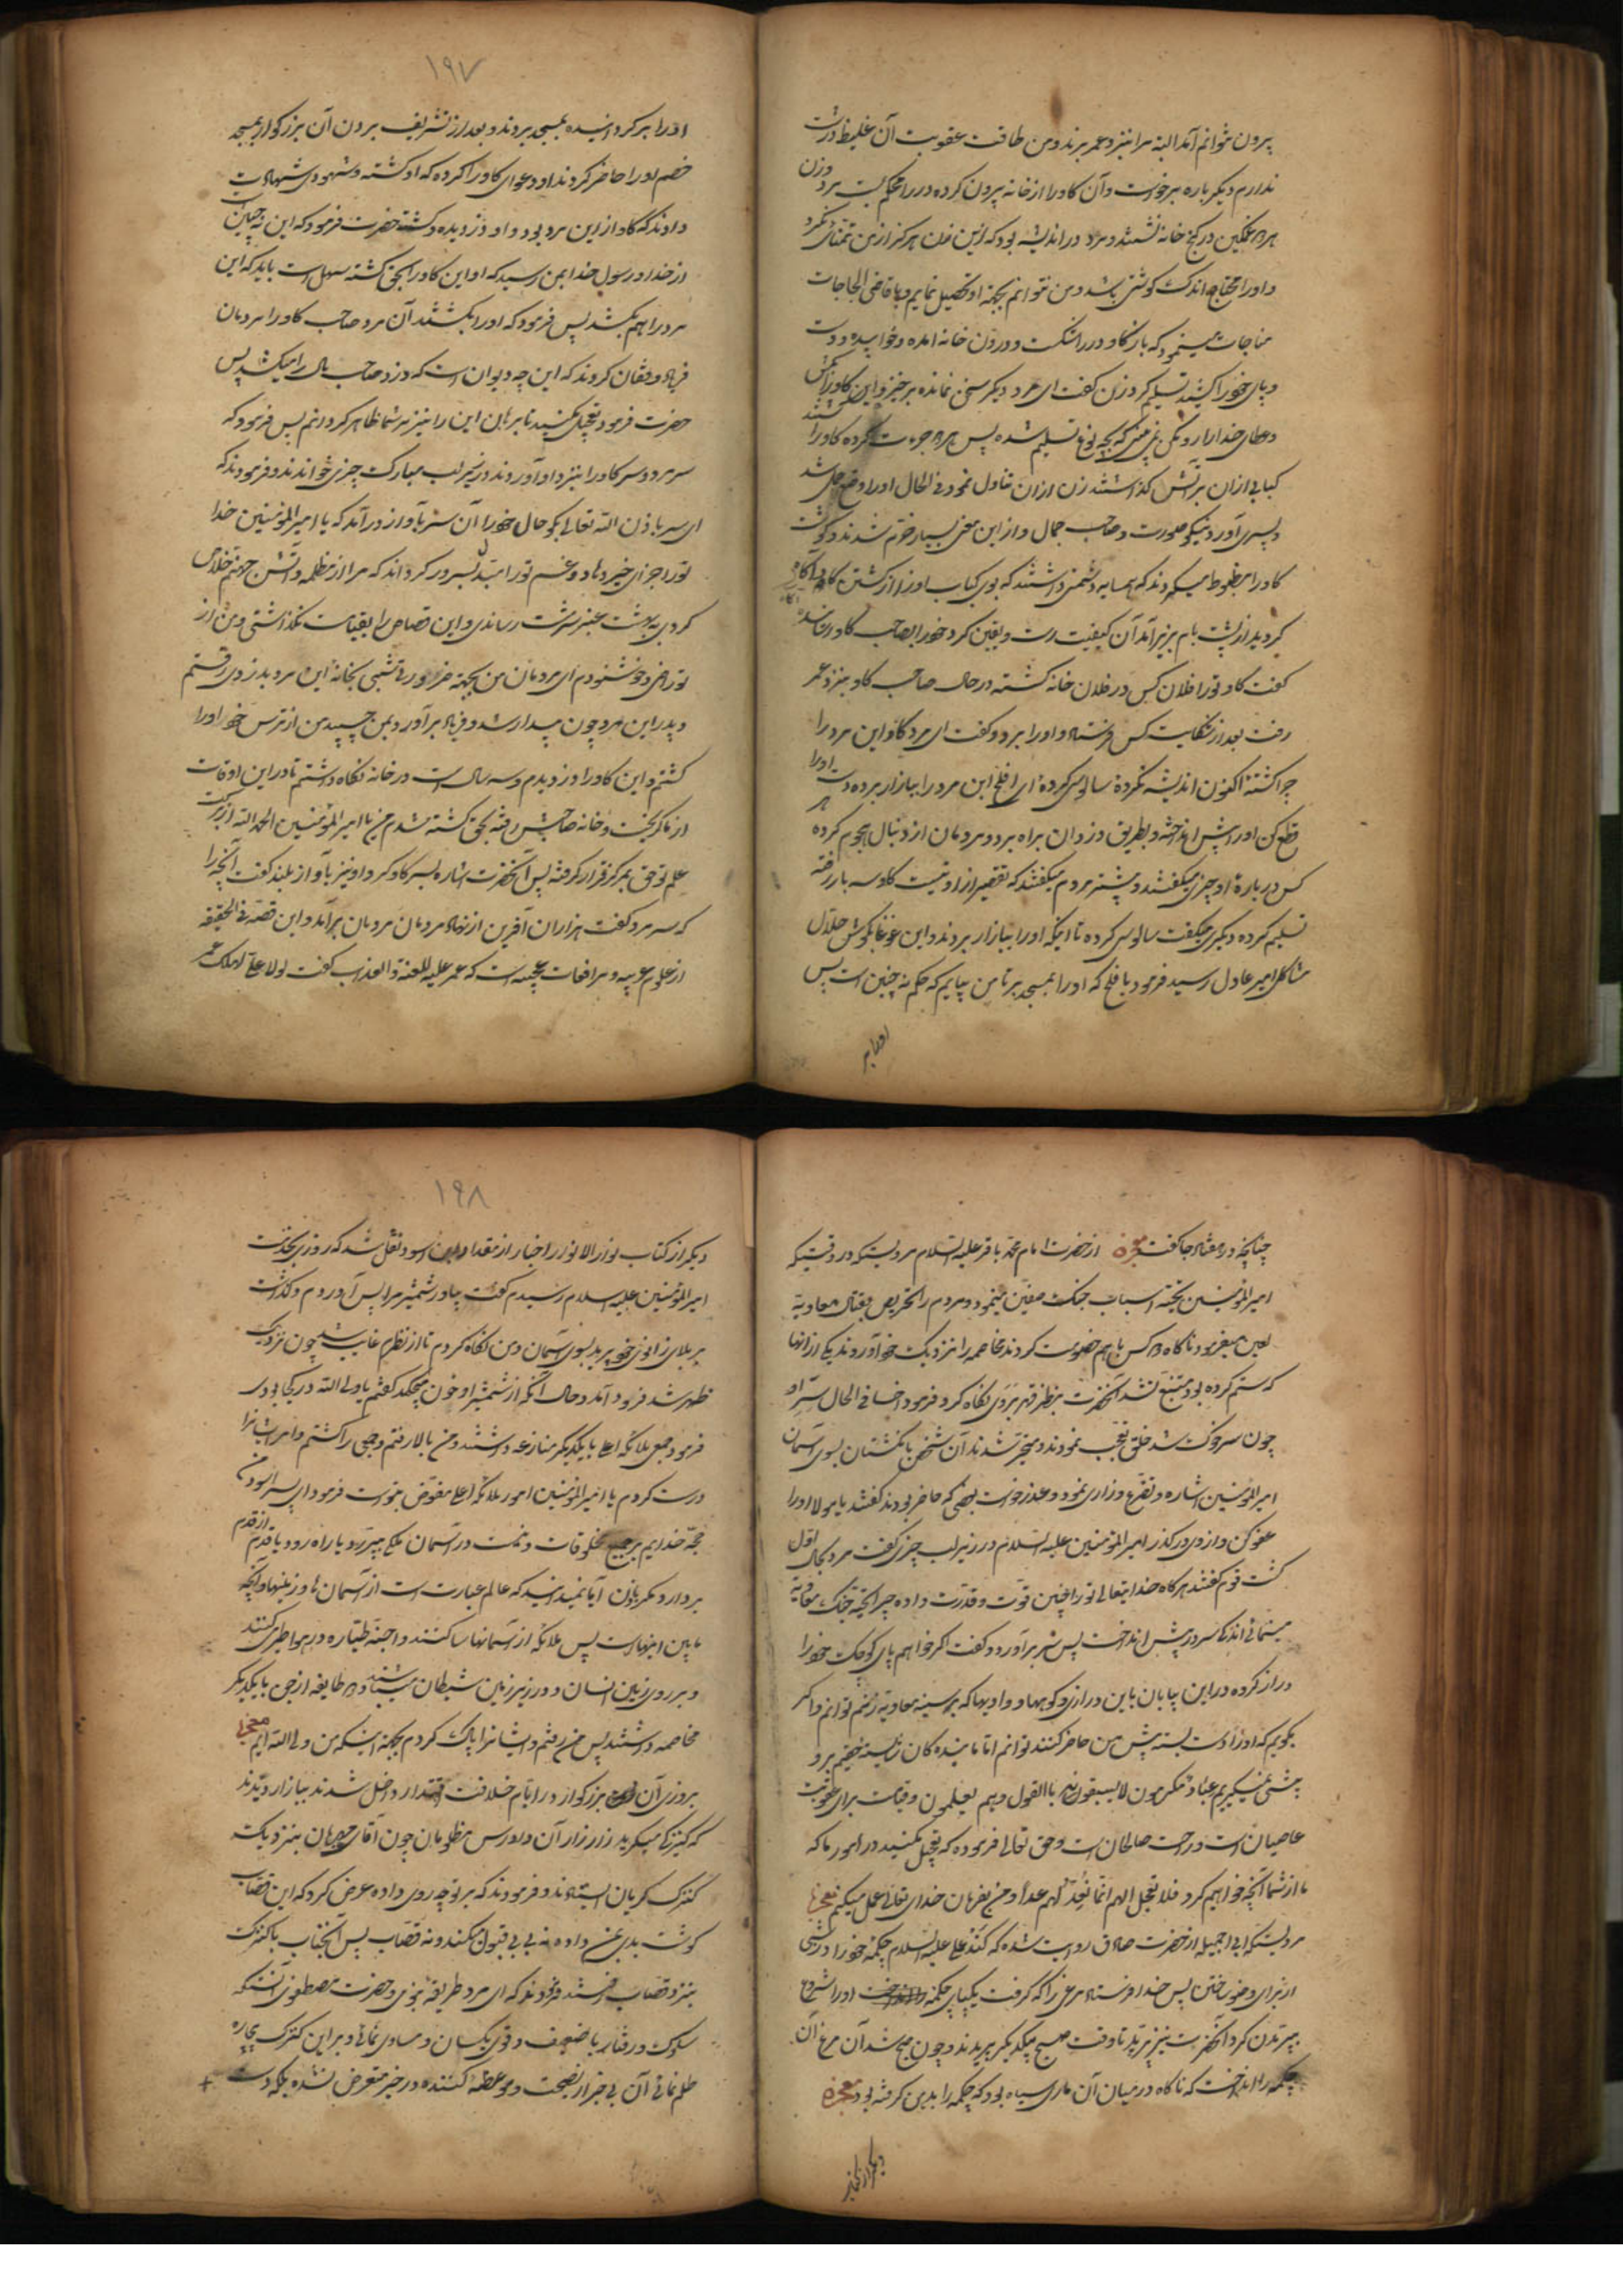 بیرون نتوانم آمد البته مرا نیز نزد عمر برند و من طاقت عقوبت آن غلیظ درشت
ندارم دیگر باره برخواست و آن کاو را از خانه بیرون کرده در را محکم بست مرد و زن
هر دو غمکین در کنج خانه نشستند و مرد در اندیشه بود که این زن هرکز از من تمنائی نکرد
و او را محتاج اندک کوشتی باشد و من نتوانم بجهة او تحصیل نمایم و با قاضی الحاجات
مناجات مینمود که باز کاو در را شکست و درون خانه آمده و خوابیده و دست
و پای خود را کشید تسلیم کرد زن کفت ای مرد دیکر سخن نمانده برخیز و این کاو را بکش
و عطای خدا را رد مکن نمی بینی که بچه نوع تسلیم شده پس هر دو جرءت کرده کاو را کشتند
کبابی ازان بر آتش کذاشتند زن ازان تناول نمود فی الحال او را وضع حمل شد
و پسری آورد نیکو صورت و صاحب جمال و از این معنی بسیار خرم شدند و کوشت
کاو را مظبوط میکردند که همسایه دشمنی داشتند که بوی کباب او را از کشتن کاو آکاه
کردید از پشت بام بزیر آمد آن کیفیت دید و یقین کرد خود را بصاحب کاو رسانده
کفت کاو تو را فلان کس در فلان خانه کشته در حال صاحب کاو بنزد عمر
رفت بعد از شکایت کس فرستاد و او را برد و کفت ای مرد کاو این مرد را
چرا کشتهٔ اکنون اندیشه نکردهٔ سالوسی کردهٔ ای افلح این مرد را ببازار برده دست او را
قطع کن او را پیش انداخته و بطریق دزدان براه برد و مردمان از دنبال هجوم کرده هر
کس درباره او چیزی میکفتند و بیشتر مردم میکفتند که تقصیر از او نیست کاو سه بار رفته
تسلیم کرده و دیکری میکفت سالوسی کرده تا اینکه او را ببازار بردند و این غوغا بکوش حلّال
مشاکل امیر عادل رسید فرمود بافلح که او را بمسجد بر تا من بیایم که حکم نه چنین است پس
او را بر
۱۹۷
او را برکردانیده بمسجد بردند و بعد از تشریف بردن آن بزرکوار بمسجد
خصم او را حاضر کردند او دعوای کاو را کرده که او کشته و شهودی شهادت
دادند که کاو از این مرد بود و او دزدیده و کشته حضرت فرمود که این نه چنین است
از خدا و رسول خدا بمن رسید که او این کاو را بحق کشته سهل است باید که این
مرد را هم بکشد پس فرمود که او را بکشند آن مرد صاحب کاو را مردمان
فریاد و فغان کردند که این چه دیوان است که دزد صاحب مال را میکشد پس
حضرت فرمود تعجیل مکنید تا برهان این را نیز بر شما ظاهر کردانم پس فرمود که
سر مرد و سر کاو را بنزد او آوردند و زیر لب مبارک چیزی خواندند و فرمودند که
ای سر باذن الله تعالی بکو حال خود را آن سر بآواز در آمد که یا امیرالمؤمنین خدا
تو را جزای خیر دهاد و غم تو را مبتدل بسرور کرداند که مرا از مظلمه و آتش جهنم خلاص
کردی به بهشت عنبر سرشت رساندی و این قصاص را بقیامت نکذاشتی و من از
تو راضی و خشنودم ای مردمان من بجهته ضرورتی شبی بخانهٔ این مرد بدزدی رفتم
و پدر این مرد چون بیدار شد و فریاد برآورد و بمن چسپید من از ترس خود او را
کشتم و این کاو را دزدیدم و سه سال است در خانه نکاه داشتم تا در این اوقات
از ما کریخت و خانه صاحبش رفته بحق کشته شدم من یا امیرالمؤمنین الحمد الله از برکت
علم تو حق بمرکز قرار کرفته پس آنحضرت اشاره بسر کاو کرد او نیز بآواز بلند کفت آنچه را
که سر مرد کفت هزاران آفرین از نهاد مردمان برآمد و این قصه فی الحقیقه
از علوم غریبه و مرافعات عجیبه است که عمر علیه اللعنة والعذاب کفت لولا علی لهلک عمر
چنانچه در هفتاد جا کفت معجزه از حضرت امام محمّد باقر علیه السّلام مرویست که در وقتیکه
امیرالمؤمنین بجهته اسباب جنک صفین مینمود و مردم را تحریص بقتال معاویة
لعین میفرمود ناکاه دو کس با هم خصومت کردند مخاصمه را بنزدیک خود آوردند یکی از انها
که ستم کرده بود متنبّه نشد آنحضرت بنظر قهر بر وی نکاه کرد و فرمود اخسأ فی الحال سر او
چون سر سک شد خلق تعجّب نمودند و متحیّر شدند آن شخص بانکشتان بسوی آسمان
امیرالمؤمنین اشاره و تضرّع و زاری نمود و عذر خواست بعضی که حاضر بودند کفتند یا مولا او را
عفو کن و از وی درکذر امیرالمؤمنین علیه السّلام در زیر لب چیزی کفت مرد بحال اوّل
کشت قوم کفتند هرکاه خدایتعالی تو را چنین قوّت و قدرت داده چرا تجهّز جنک معاویة
مینمائی اندکی سر در پیش انداخت پس سر برآورد و کفت اکر خواهم پای کوچک خود را
دراز کرده در این بیابان باین درازی و کوهها و وادیها که بر سینه معاویة زنم توانم و اکر
بکویم که او را دست بسته پیش من حاضر کنند توانم امّا ما بنده کان
پیشی نمیکیریم عباد مکرمون لا یسبقونه بالقول و هم یعلمون و قیامت برای عقوبت
عاصیان است و راحت صالحان است و حق تعالی فرموده که تعجیل مکنید در امور ما که
ما از شما آنچه خواهیم کرد فلا تعجل الهم انّما نعدّ لهم عدا و من بفرمان خدای تعالی عمل میکنم معجزه
مرویست که از حضرت صادق روایت شده که کند علی علیه السّلام چکمهٔ خود را در شبی
از برای وضو ساختن پس خدا فرستاد مرغی را که کرفت یکپای چکمه او را شروع
بپریدن کرد آنحضرت نیز تا وقت صبح بیکدیکر پریدند و چون صبح شد آن مرغ آن
چکمه را انداخت که ناکاه در میان آن ماری سیاه بود که چکمه را بدین کرفته بود معجزه
دیکر از کتاب
۱۹۸
دیکر از کتاب نوادر الانوار اخبار از مقداد ابن اسود نقل شد که روزی بخدمت
امیرالمؤمنین علیه السلام رسیدم کفت بیاور شمشیر مرا پس آوردم و کذاشت
بر بلای زانوی خود پرید بسوی آسمان و من نکاه کردم تا از نظرم غایب شد چون نزدیک
ظهر شد فرود آمد و حال آنکه از شمشیر او خون میچکد کفتم یا ولی الله در کجا بودی
فرمود جمع ملائکه اعلی با یکدیکر منازعه داشتند و من بالا رفتم و جمعی را کشتم و امر ایشان را
درست کردم یا امیرالمؤمنین امور ملائکه اعلی مفوّض بتوست فرمود ای پسر اسود من
حجّه خدایم بر جمیع مخلوقات و نیست در آسمان ملکی بپرد و یا راه رود یا قدم از قدم
بردارد مکر باذن آیا نمیدانید که عالم عبارت است از آسمان ها و زمینها و آنچه
مابین اینهاست پس ملائکه از آسمانها ساکنند و اجنّه طیّاره در هوا طیر کنند
و بر روی زمین انسان و در زیر زمین شیطان میباشند و دو طایفه از جن با یکدیکر
مخاصمه داشتند پس من رفتم و ایشان را پاک کردم بجهته اینکه من ولی الله ایم معجزه
بروزی آن بزرکوار در ایّام خلافت داخل شدند ببازار دیدند
که کنیزکی میکرید زار زار آن دادرس مظلومان چون آقای جهان بنزدیک
کنیزک کریان ایستادند و فرمودند که بر تو چه روی داده عرض کرد که این قصاب
کوشت بدی بمن داده نه بی بی قبول میکند و نه قصّاب پس آنجناب با کنیزک
بنزد قصاب رفتند و فرمودند که ای مرد طریقهٔ نبوی و حضرت مصطفوی آنستکه
سلوک و رفتار با ضعیف و قوی یکسان و مساوی نمائی و بر این کنیزک بیچاره
ظلم نمائی آن بی خبر از نصیحت و موعظه کننده در خیر متعرّض نشده بلکه دست